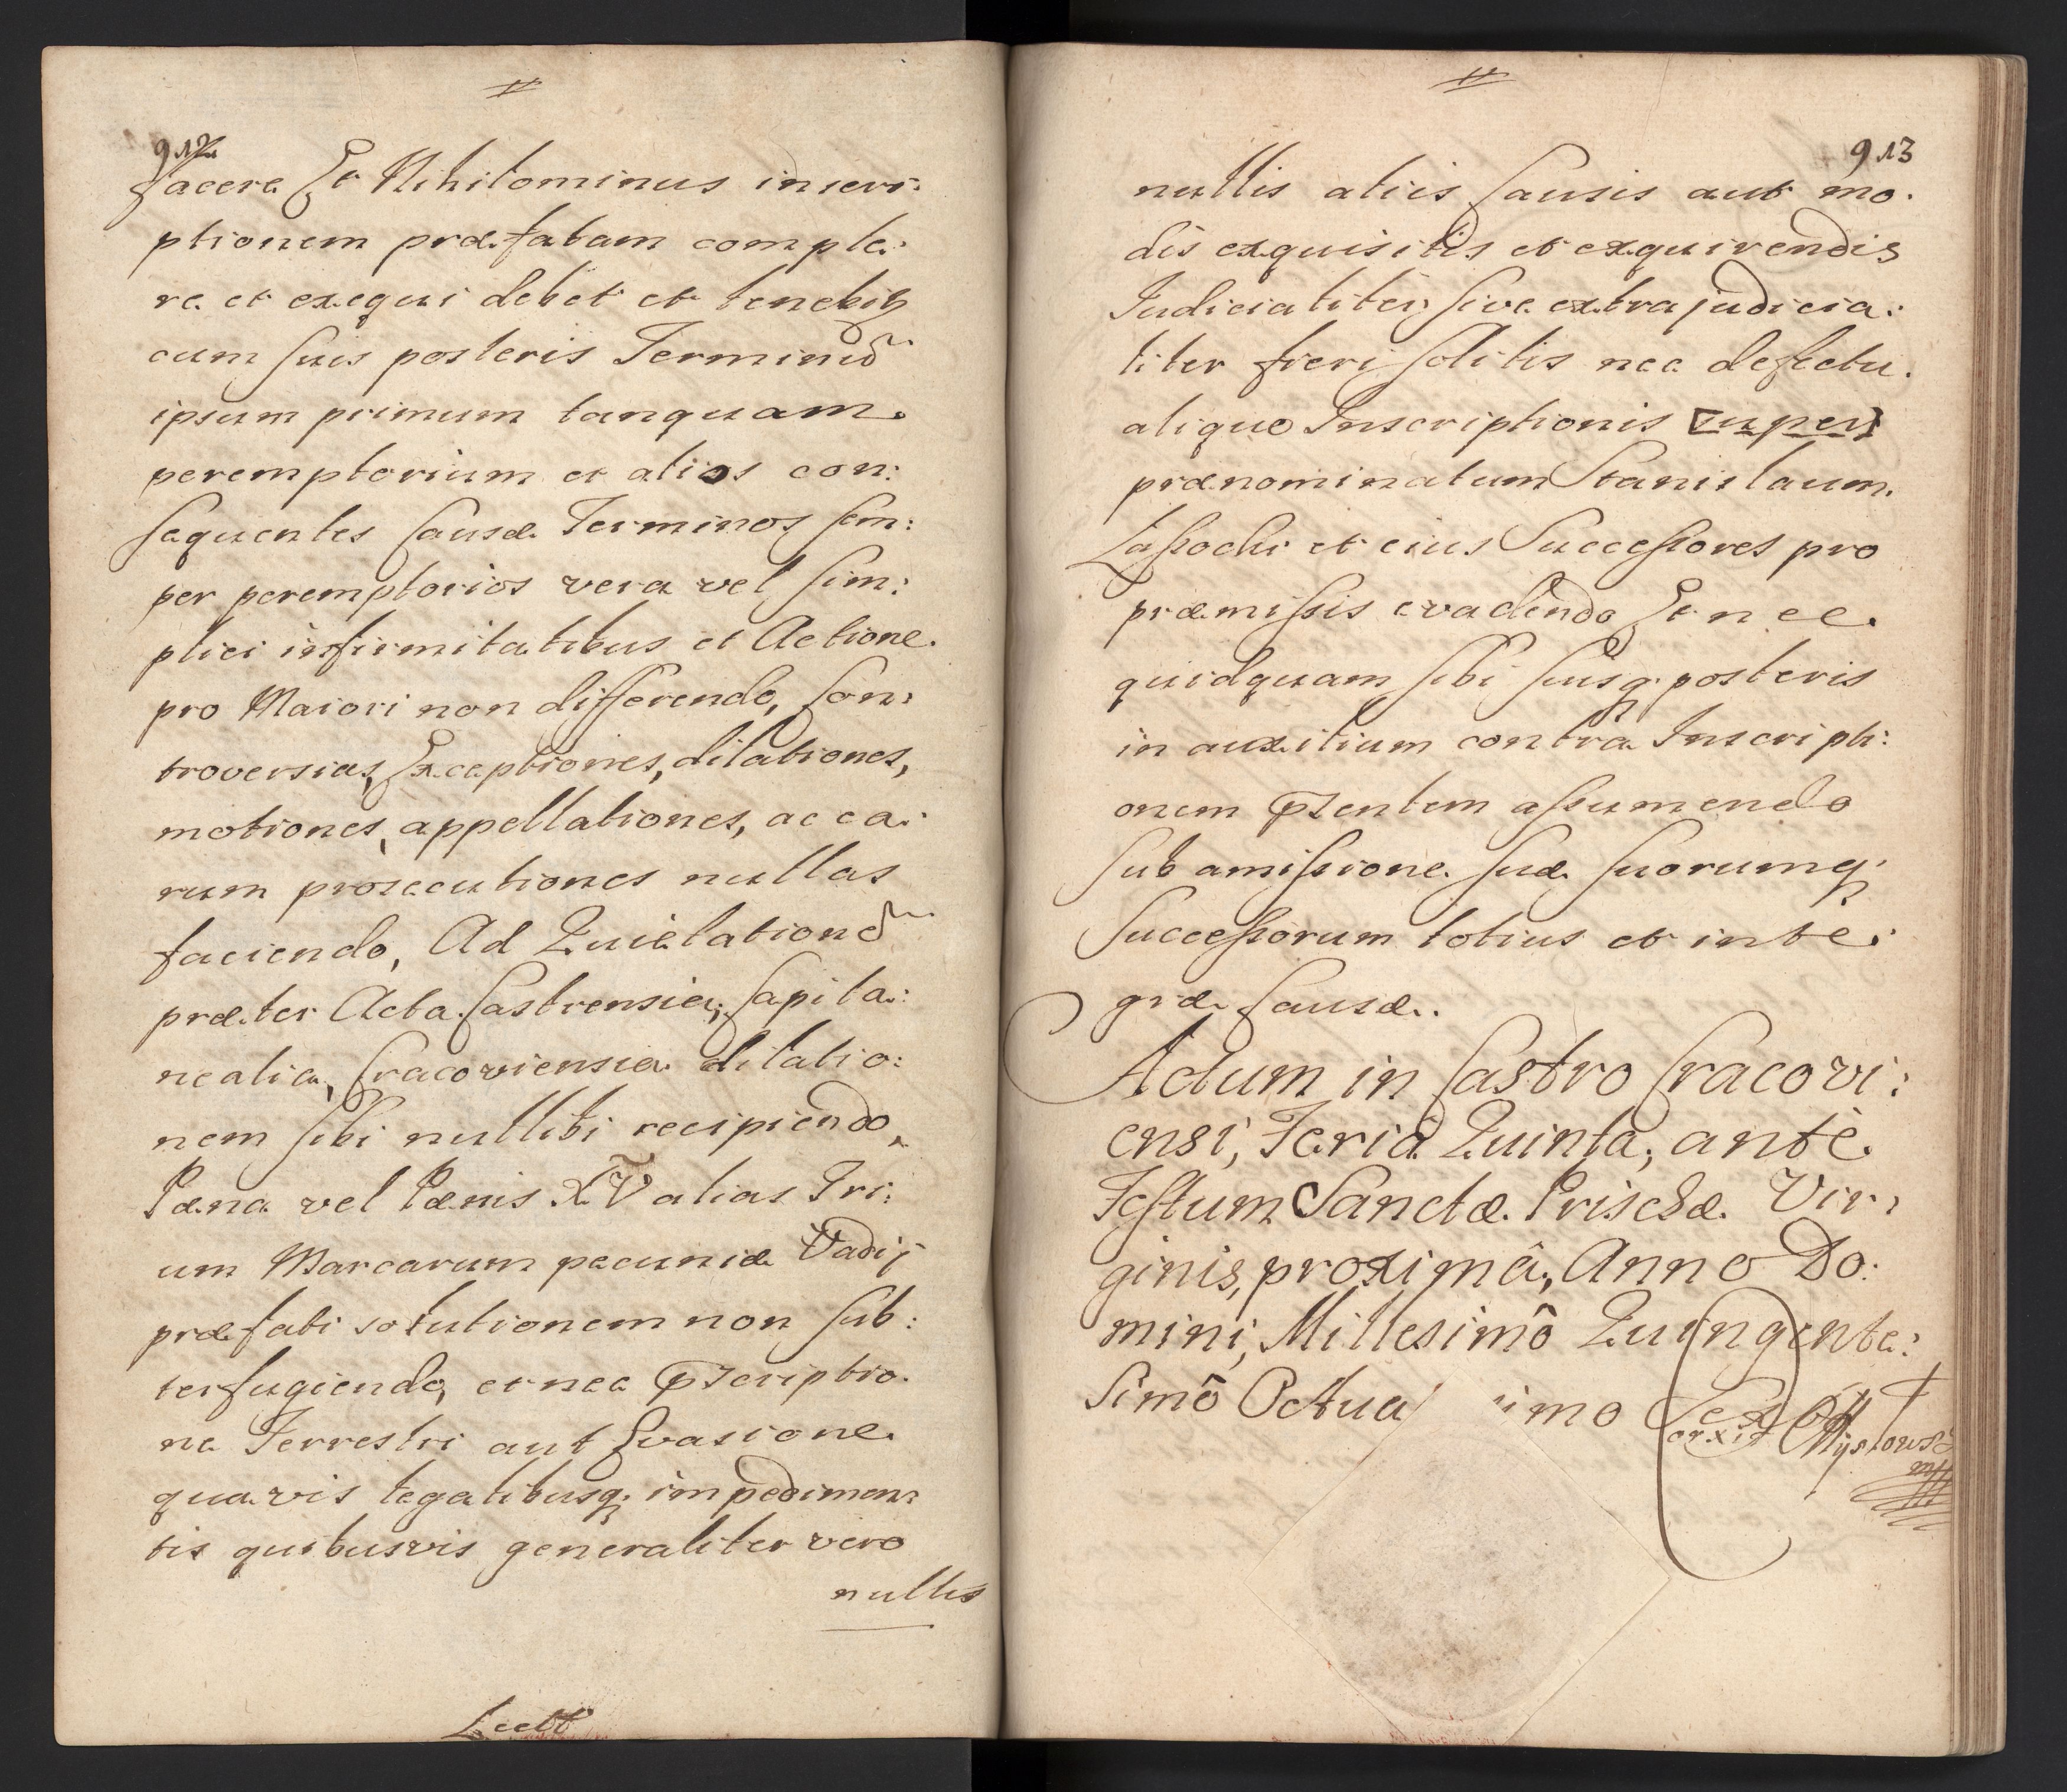 912
facere Et Nihilominus inscri:
ptionem præfatam comple:
re et exequi debet et tenebitq
cum suis posteris Terminũ
ipsum primum tanquam
peremptorium et alios con:
sequentes Causæ Terminos sem:
per peremptorios vera vel sim:
plici infirmitatibus et Actione
pro Maiori non differendo, Con:
troversias, Exceptiones, dilationes,
motiones, appellationes, ac ea:
rum prosecutiones nullas
faciendo, Ad Quietationẽ
præter Acta Castrensia, Capita:
nealia, Cracoviensia dilatio:
nem sibi nullibi recipiendo,
Pæna vel Pænis XV alias Tri:
um Marcarum pecuniæ Vadij
præfati solutionem non sub:
terfugiendo, et nec præscriptio:
ne Terrestri aut Evasione
quavis legalibusq. impedimen:
tis quibusvis generaliter vero
nullis
Lectt
913
nullis aliis Causis aut mo:
dis exquisitis et exquirendis
Iudicialiter, sive extrajudicia:
liter fieri solitis nec defectu
aliquo Inscriptionis [super]
prænominatum Stanislaum
Lassocki et eius Successores pro
præmissis evadendo Et nec
quidquam sibi suisq. posteris
in auxilium contrà Inscripti:
onem præsentem assumendo
sub amissione suæ suorumq.
Successorum totius et inte:
græ Causæ.
Actum in Castro Cracovi:
ensi, Feria Quinta, antè
Festum Sanctæ Priscæ Vir:
ginis, proximâ, Anno Do:
mini, Millesimô Quingente:
simô Octua imo Sexto